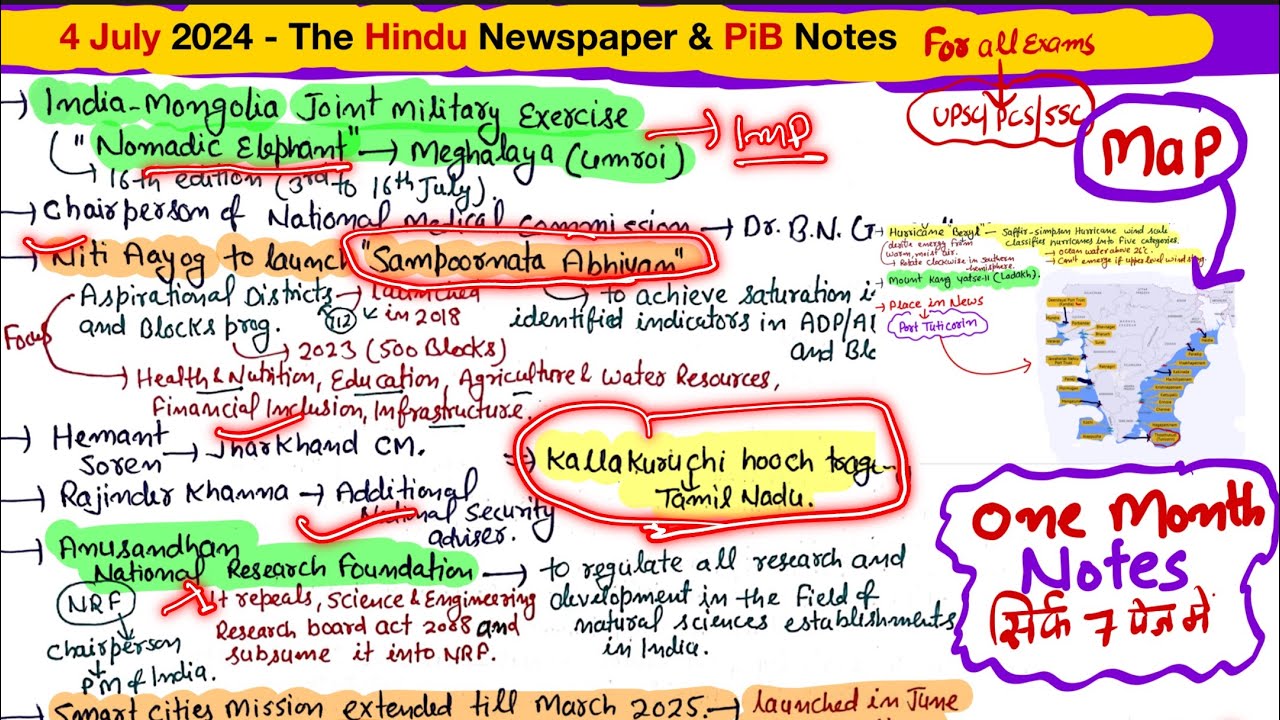 4 July 2024 - The Hindu Newspaper & PiB Notes
For all Exams
UPSC/PCS/SSC
MaP
→ India-Mongolia Joint Military Exercise
("Nomadic Elephant" → Meghalaya (Umroi) → IMP
16th edition (3rd to 16th July).
→ Chairperson of National Medical Commission → Dr. B.N. G
→ Niti Aayog to launch "Sampoornata Abhiyan"
Focus
Aspirational Districts → launched
and Blocks prog. 112 in 2018
→ 2023 (500 Blocks)
→ to achieve saturation i
identified indicators in ADP/A
and Blo
→ Health & Nutrition, Education, Agriculture & Water Resources,
Financial Inclusion, Infrastructure.
→ Hemant
Soren → Jharkhand CM.
→ Rajinder Khanna → Additional
National Security
adviser.
⇒ Kallakuruchi hooch trage
Tamil Nadu.
→ Anusandhan
National Research Foundation → to regulate all research and
development in the field of
natural sciences establishments
in India.
NRF
Chairperson
PM of India.
→ It repeals, Science & Engineering
Research board act 2008 and
subsume it into NRP.
→ Smart cities mission extended till March 2025. → launched in June
→ Hurricane "Beryl" — Saffir-simpson Hurricane wind scale
classifies hurricanes into Five categories.
derive energy from
warm, moist air.
→ Rotate clockwise in southern
hemisphere.
→ ocean water above 26°C.
→ Can't emerge if upper level wind strong
→ Mount Kang yatse-II (Ladakh).
→ Place in News
Port Tuticorin
One Month
Notes
सिर्फ 7 पेज में